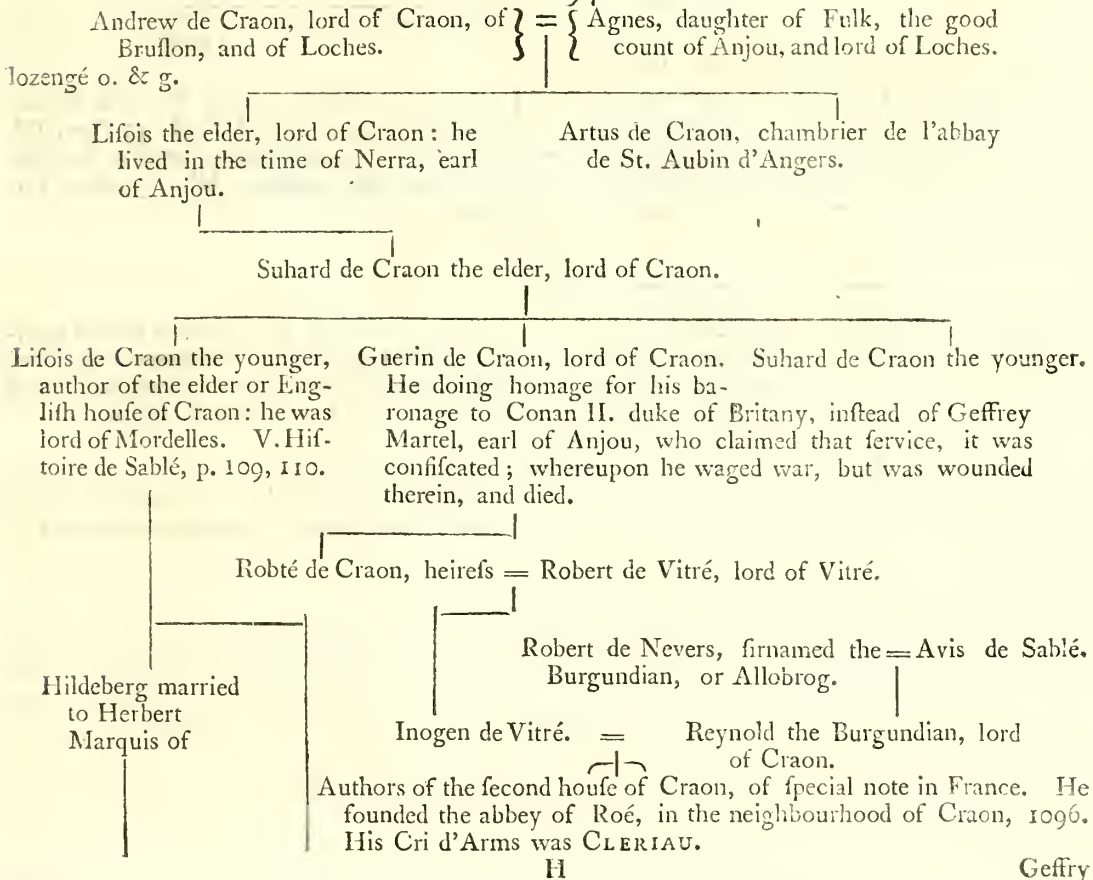 Andrew de Craon, lord of Craon, of } = { Agnes, daughter of Fulk, the good
Bruſlon, and of Loches. count of Anjou, and lord of Loches.
lozengé o. & g.
Liſois the elder, lord of Craon: he
lived in the time of Nerra, earl
of Anjou.
Artus de Craon, chambrier de l'abbay
de St. Aubin d'Angers.
Suhard de Craon the elder, lord of Craon.
Liſois de Craon the younger,
author of the elder or Eng-
liſh houſe of Craon: he was
lord of Mordelles. V. Hiſ-
toire de Sablé, p. 109, 110.
Guerin de Craon, lord of Craon.
He doing homage for his ba-
ronage to Conan II. duke of Britany, inſtead of Geffrey
Martel, earl of Anjou, who claimed that ſervice, it was
confiſcated; whereupon he waged war, but was wounded
therein, and died.
Suhard de Craon the younger.
Robté de Craon, heireſs = Robert de Vitré, lord of Vitré.
Robert de Nevers, ſirnamed the = Avis de Sablé.
Burgundian, or Allobrog.
Hildeberg married
to Herbert
Marquis of
Inogen de Vitré. = Reynold the Burgundian, lord
of Craon.
Authors of the ſecond houſe of Craon, of ſpecial note in France. He
founded the abbey of Roé, in the neighbourhood of Craon, 1096.
His Cri d'Arms was CLERIAU.
H Geffry